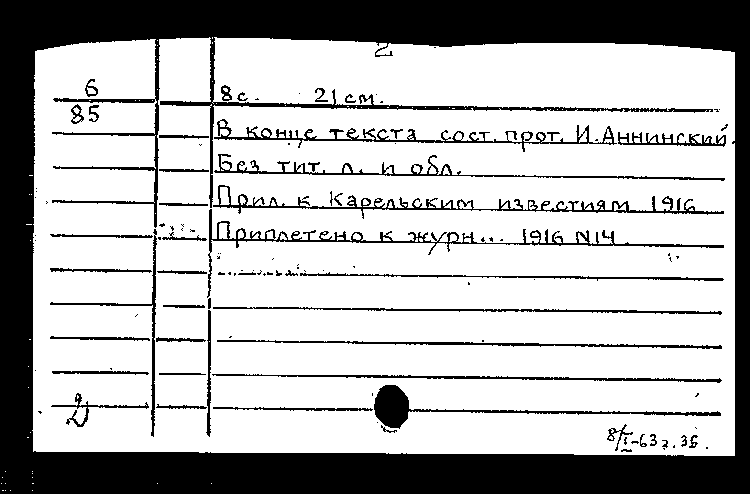 2
6
8с. 21 см.
85
В конце текста сост. прот. И. Аннинский.
Без тит. л. и обл.
Прил. к Карельским известиям 1916
Приплетено к журн... 1916 N14.
2
8/I-63г.